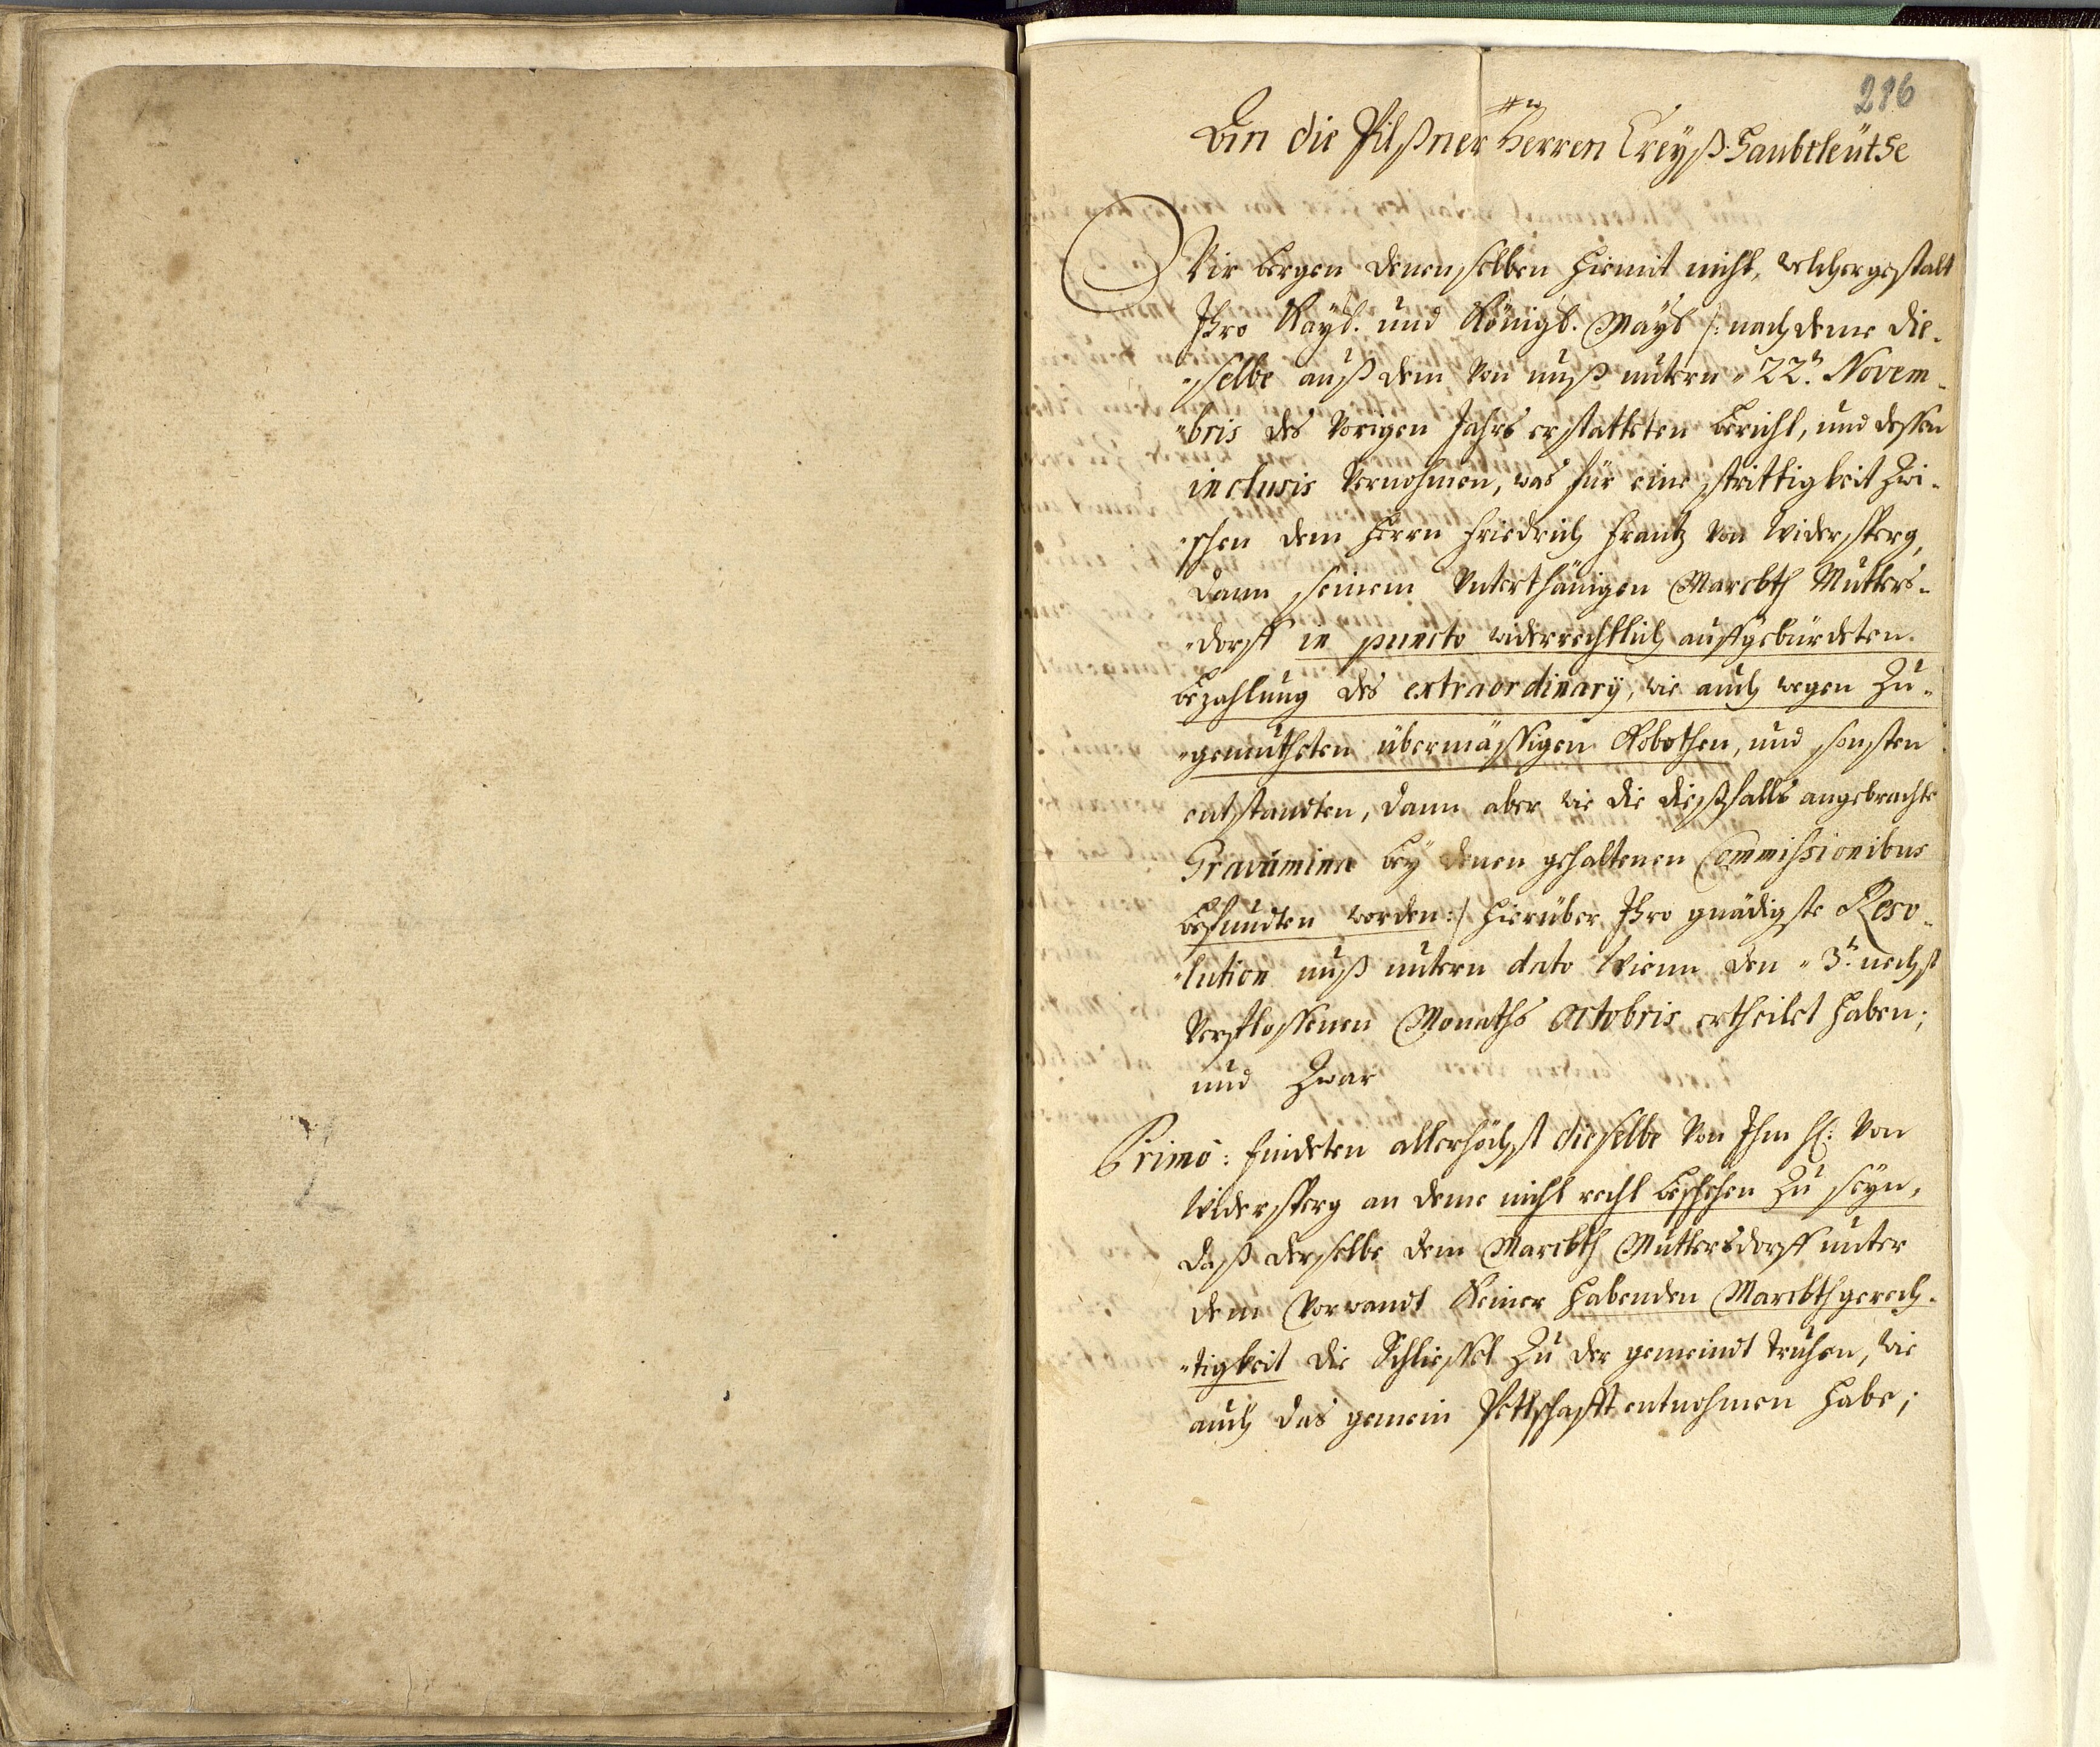 286
An die Pilßner Herren Creyß-Haubtleüthe
Wir bergen denenselben hiemit nicht, welchergestalt
Ihro Kayß. und Königl. Mayß /: nachdeme die-
"selbe auß dem von unß untern "22.ten Novem-
"bris des vorigen Jahrs erstatteten bericht, und dessen
inclusis vernohmen, was für eine strittigkeit zwi-
"schen dem Herrn Friedrich Frantz von Widersperg,
dann seinem unterthänigen Marckth Mutters-
"dorff in puncto widerrechtlich auffgebürdeten
bezahlung des extraordinarÿ, wie auch wegen zu-
"gemutheten übermässigen Robothen, und sonsten
entstandten, dann aber wie die dießfalls angebrachte
Gravamina beÿ denen gehaltenen Commißionibus
befundten worden :/ hierüber Ihro gnädigste Reso-
"lution unß untern dato Wienn den "3.ten nechst
verflossenen Monaths Octobris ertheilet haben;
und zwar
Primò: findeten allerhöchst dieselbe von Ihm H: von
Widersperg an deme nicht recht beschehen zu seÿn,
daß derselbe dem Marckth Muttersdorff unter
dem Vorwandt Keiner habenden Marckthgerech-
"tigkeit die Schliessel zu der gemeindt truhen, wie
auch das gemein Pettschafft entnohmen habe;